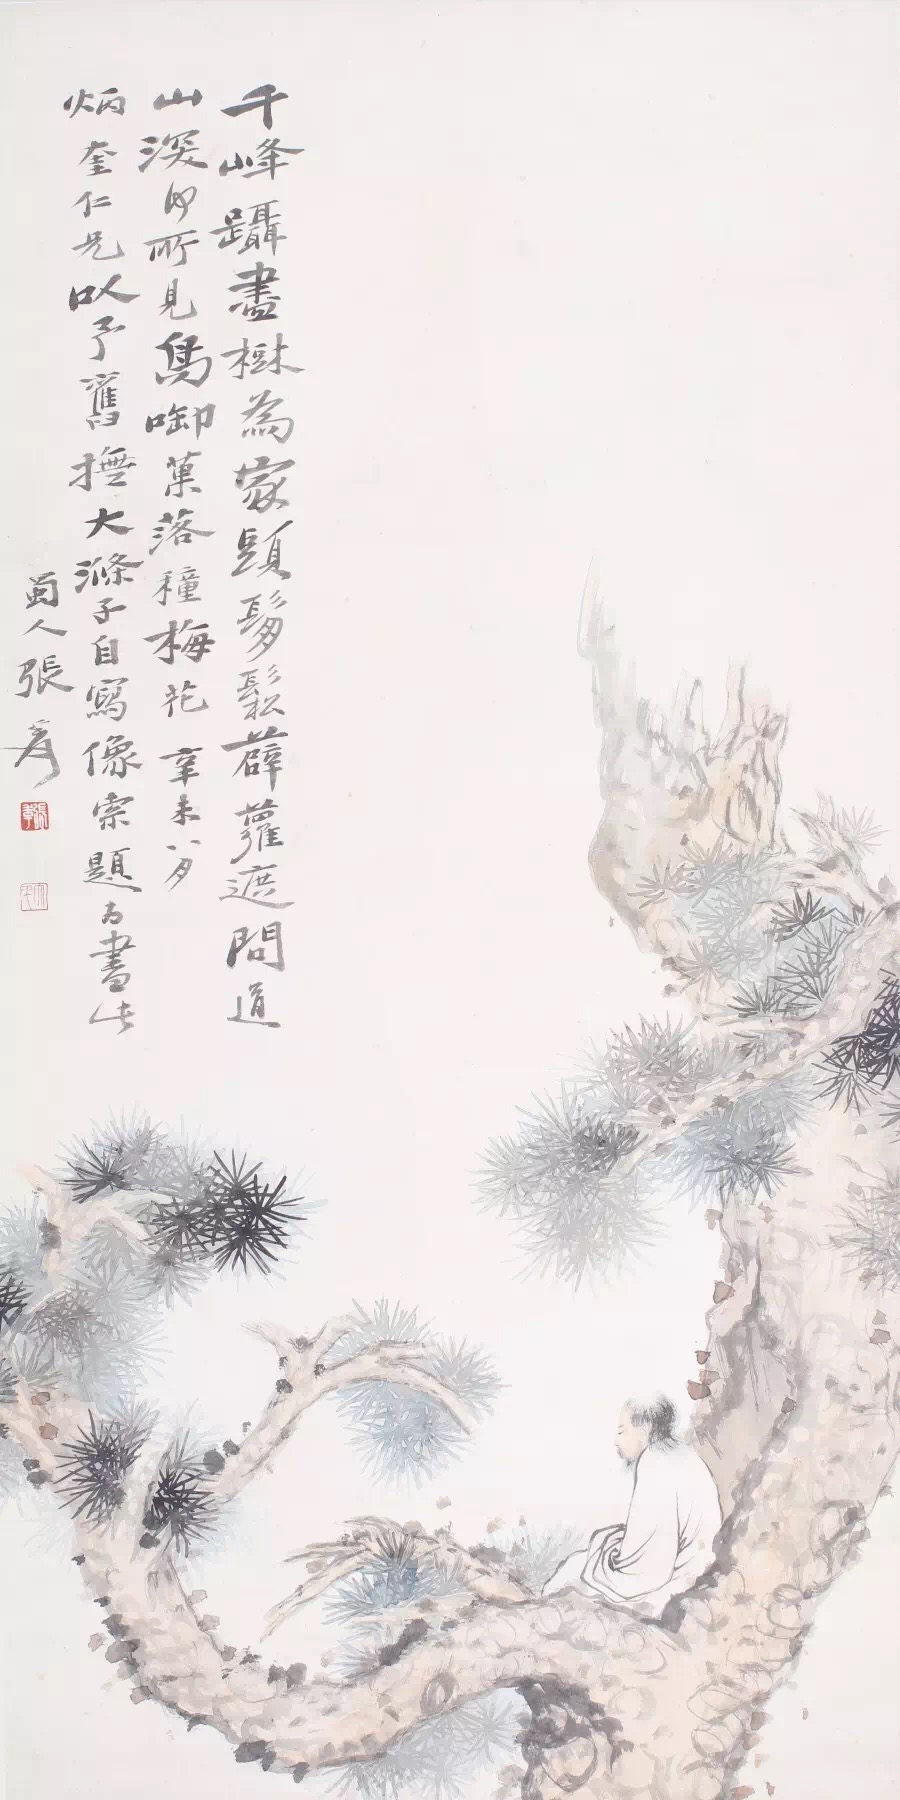 千峰躡盡樹為家頭鬅鬆薜蘿遮問道
山深何所見鳥啣菓落種梅花辛未八月
炳奎仁兄以予舊撫大滌子自寫像索題為畫此
蜀人張爰